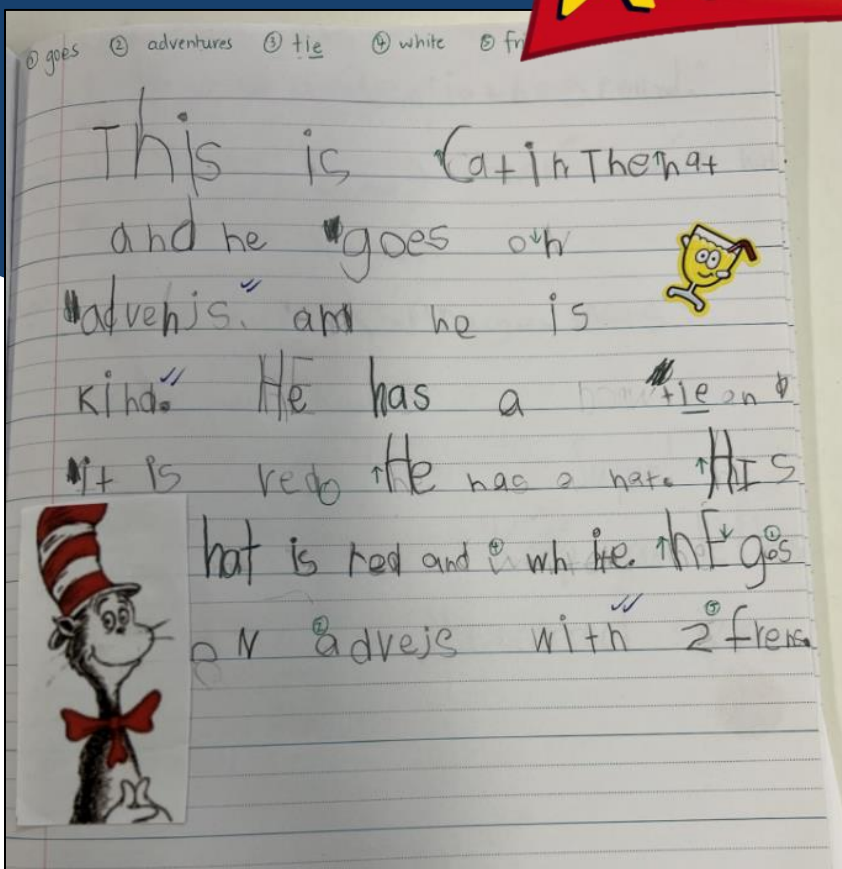 ① goes ② adventures ③ tie ④ white ⑤ fri
This is Cat in The hat
and he goes on
advenjs. and he is
kind. HE has a tie and
it is red. He has a hat. HIS
hat is red and ④ white. hE ① gos
oN ② advejs with 2 ⑤ frens.